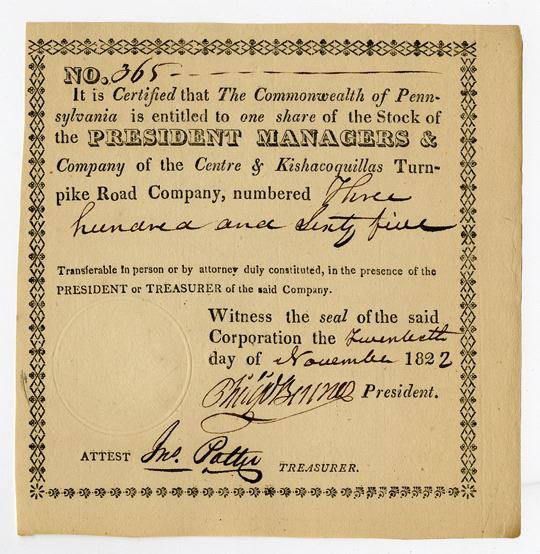 NO. 365
It is Certified that The Commonwealth of Penn-
sylvania is entitled to one share of the Stock of
the PRESIDENT MANAGERS &
Company of the Centre & Kishacoquillas Turn-
pike Road Company, numbered Three
hundred and Sixty five
Transferable in person or by attorney duly constituted, in the presence of the
PRESIDENT or TREASURER of the said Company.
Witness the seal of the said
Corporation the Twentieth
day of November 1822
President.
ATTEST Jno. Potter TREASURER.